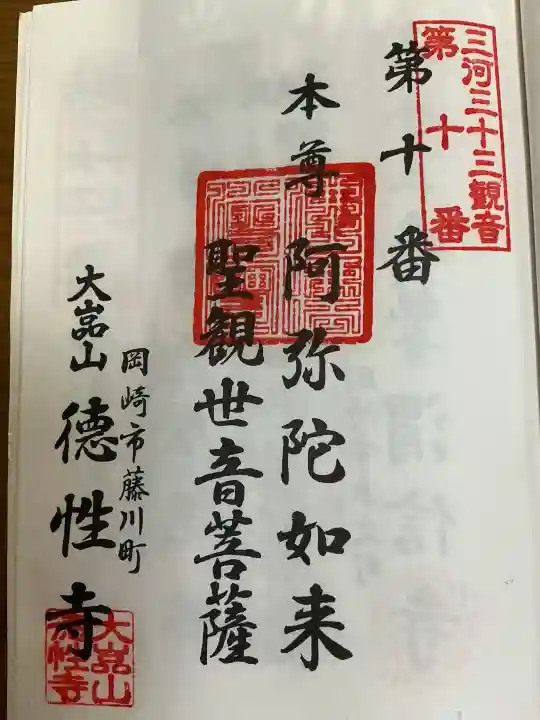 三河三十三観音
第十番
第十番
本尊 阿弥陀如来
聖観世音菩薩
岡崎市藤川町
大嵓山 德性寺
大嵓山
德性寺